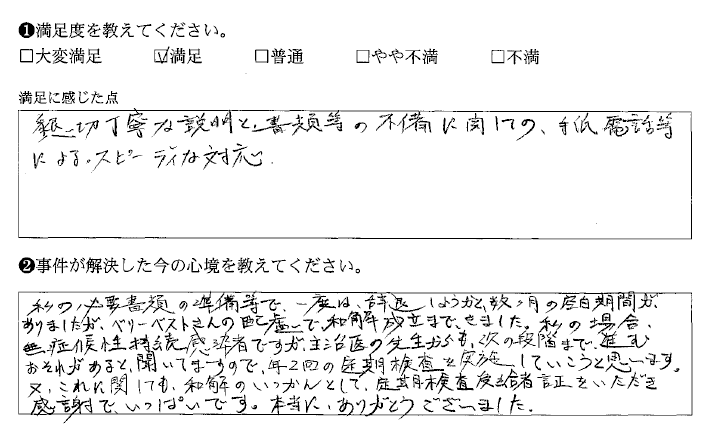 ❶満足度を教えてください。
□大変満足 ☑満足 □普通 □やや不満 □不満
満足に感じた点
懇切丁寧な説明と、書類等の不備に関しての、手紙、電話等
による。スピーディな対応
❷事件が解決した今の心境を教えてください。
私の必要書類の準備等で、一度は、辞退しようかと、数ヶ月の空白期間が、
ありましたが、ベリーベストさんの配慮で、和解成立まで、きました。私の場合、
無症候性持続感染者ですが、主治医の先生からも、次の段階まで、進む
おそれがあると、聞いてますので、年2回の定期検査を実施していこうと思います。
又、これに関しても、和解のいっかんとして、定期検査受給者証をいただき
感謝で、いっぱいです。本当に、ありがとうございました。